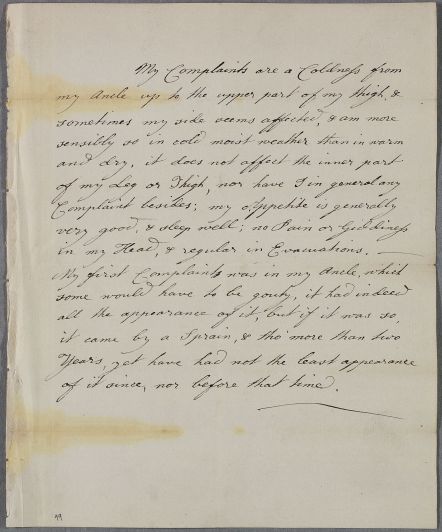 My Complaints are a Coldness from
my Ancle up to the upper part of my thigh, &
sometimes my side seems affected, & am more
sensibly so in cold moist weather than in warm
and dry, it does not affect the inner part
of my Leg or Thigh, nor have I in general any
Complaint besides; my Appetite is generally
very good, & sleep well; no Pain or Giddiness
in my Head, & regular in Evacuations.
My first Complaints was in my Ancle, which
some would have to be gouty, it had indeed
all the appearance of it, but if it was so,
it came by a Sprain, & tho' more than two
Years, yet have had not the least appearance
of it since, nor before that time.